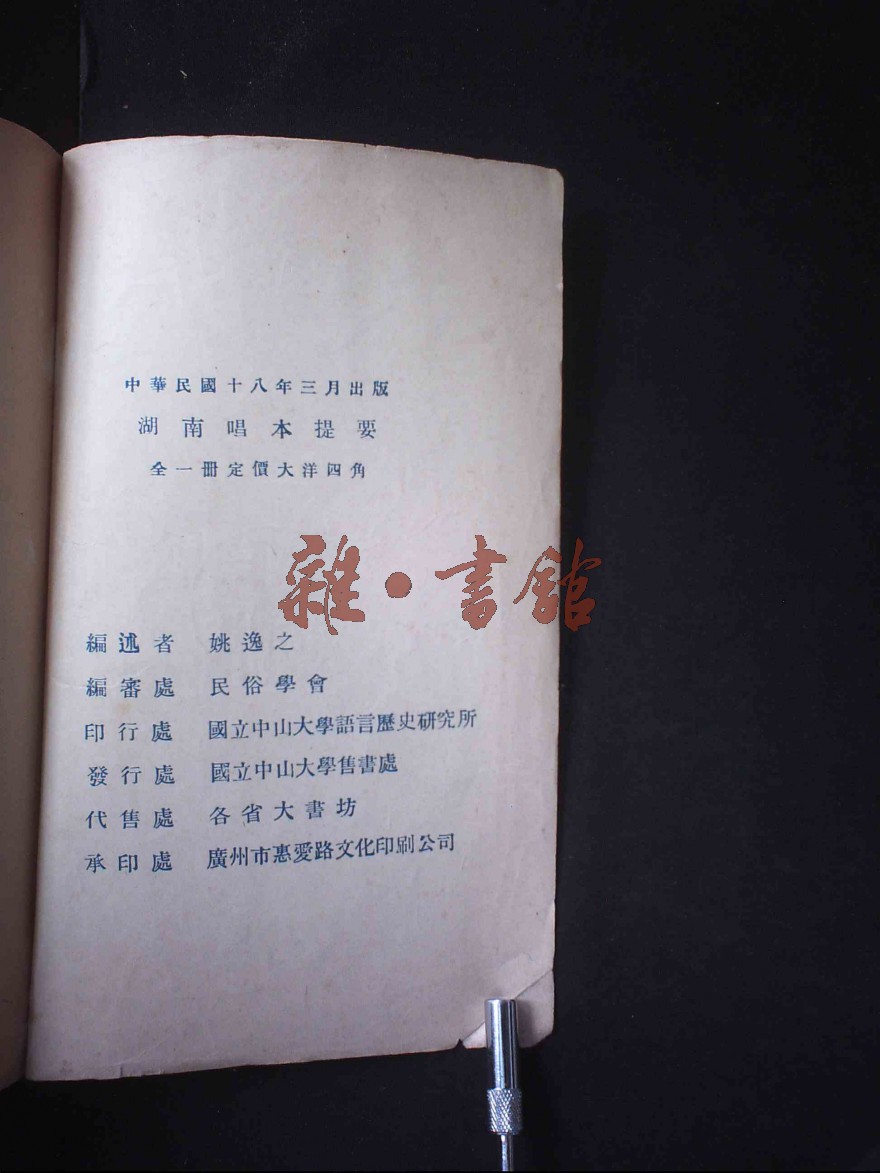 中華民國十八年三月出版
湖南唱本提要
全一冊定價大洋四角
雜·書館
編述者 姚逸之
編審處 民俗學會
印行處 國立中山大學語言歷史研究所
發行處 國立中山大學售書處
代售處 各省大書坊
承印處 廣州市惠愛路文化印刷公司